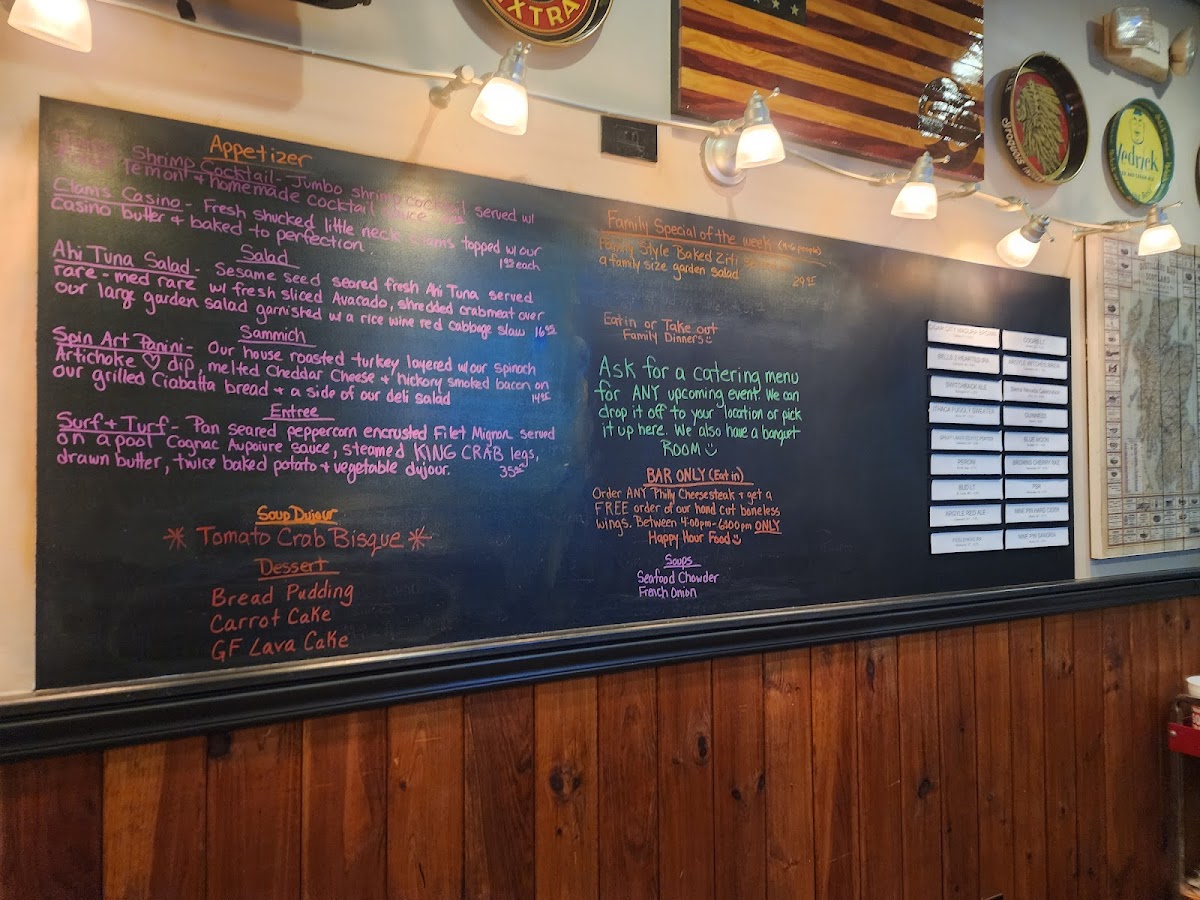 EXTRA
Appetizer
Shrimp Cocktail - Jumbo shrimp cocktail served w/
lemon + homemade cocktail sauce
Clams Casino - Fresh shucked little neck clams topped w/ our
casino butter + baked to perfection
1.95 each
Salad
Ahi Tuna Salad - Sesame seed seared fresh Ahi Tuna served
rare - med rare w/ fresh sliced Avacado, shredded crabmeat over
our large garden salad garnished w a rice wine red cabbage slaw 16.95
Sammich
Spin Art Panini - Our house roasted turkey layered w/ our spinach
Artichoke ♡ dip, melted Cheddar Cheese + hickory smoked bacon on
our grilled Ciabatta bread + a side of our deli salad 14.95
Entree
Surf + Turf - Pan seared peppercorn encrusted Filet Mignon served
on a pool Cognac Aupoivre sauce, steamed KING CRAB legs,
drawn butter, twice baked potato + vegetable dujour. 35.95
Soup Dujour
* Tomato Crab Bisque *
Dessert
Bread Pudding
Carrot Cake
GF Lava Cake
Family Special of the week (4-6 people)
Family Style Baked Ziti
a family size garden salad 29.95
Eat in or Take out
Family Dinners
Ask for a catering menu
for ANY upcoming event. We can
drop it off to your location or pick
it up here. We also have a banquet
ROOM
BAR ONLY (Eat in)
Order ANY Philly Cheesesteak + get a
FREE order of our hand cut boneless
wings. Between 4:00pm-6:00pm ONLY
Happy Hour Food
Soups
Seafood Chowder
French Onion
CIGAR CITY MADURO BROWN
COORS LT
BELLS 2 HEARTED IPA
SWITCHBACK ALE
Sierra Nevada
GUINNESS
BLUE MOON
PERONI
BUD LT
PBR
ARGYLE RED ALE
NINE PIN HARD CIDER
NINE PIN SANGRIA
Iroquois
Hedrick